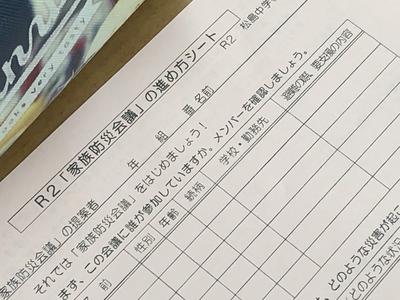 R2 松島中学
R2「家族防災会議」の進め方シート
年 組 番 名前
家族防災会議」の提案者
それでは「家族防災会議」をはじめましょう！
まず、この会議に誰が参加していますか。メンバーを確認しましょう。
前 性別 年齢 続柄 学校・勤務先 避難の際、要支援の内容
どのような災害が起こ
どのような状況